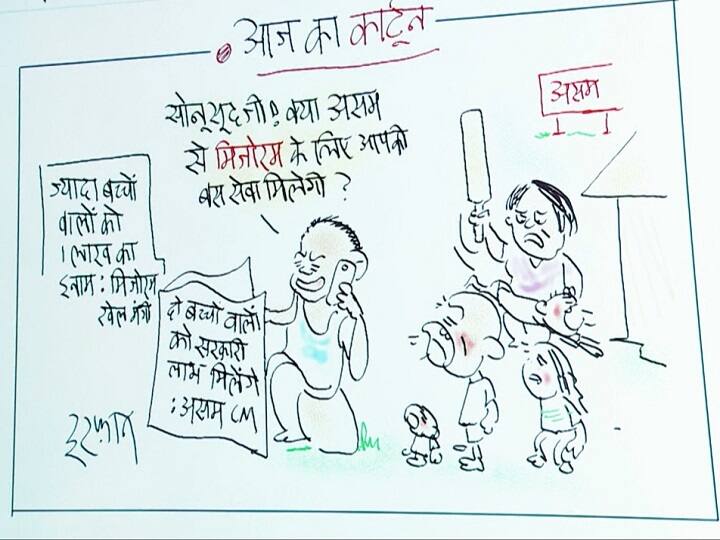 आज का कार्टून
सोनू सूद जी? क्या असम
से मिजोरम के लिए आपकी
बस सेवा मिलेगी ?
असम
ज्यादा बच्चों
वालों को
1 लाख का
इनाम : मिजोरम
खेल मंत्री
दो बच्चों वालों
को सरकारी
लाभ मिलेंगे
: असम CM
इरफ़ान